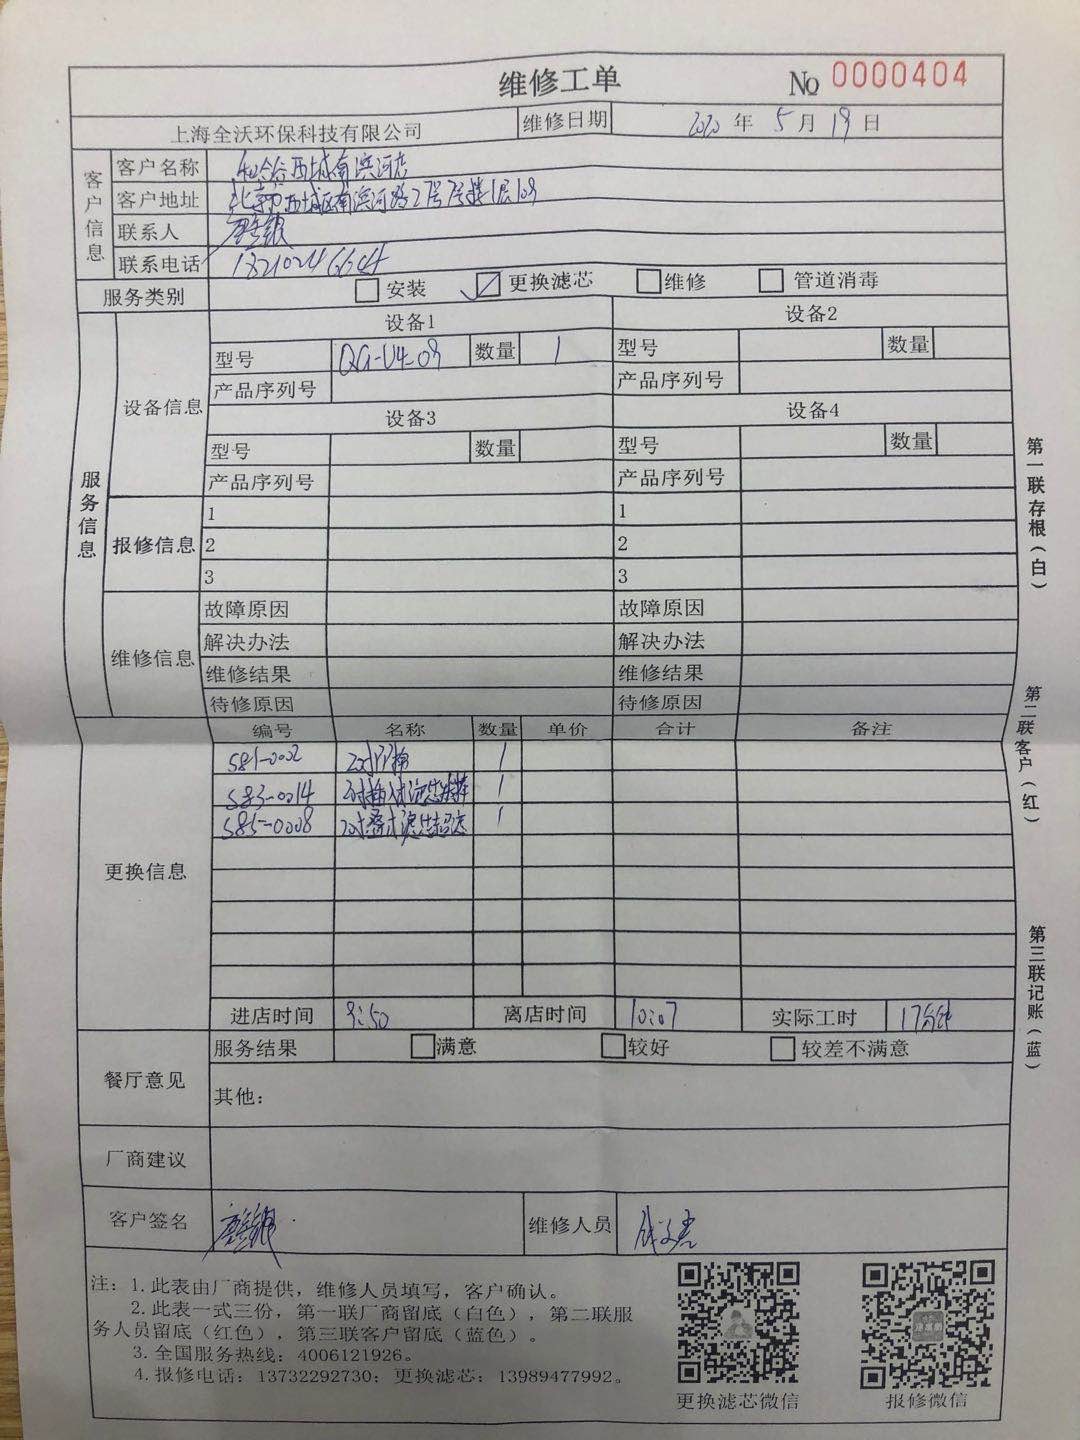 维修工单 No 0000404
上海全沃环保科技有限公司 维修日期 2020 年 5 月 19 日
客户信息
客户名称 和合谷西城南滨河店
客户地址 北京市西城区南滨河路27号7号楼1层109
联系人
联系电话
服务类别 安装 更换滤芯 维修 管道消毒
服务信息
设备信息
设备1 设备2
型号 QG-U4-09 数量 1 型号 数量
产品序列号 产品序列号
设备3 设备4
型号 数量 型号 数量
产品序列号 产品序列号
报修信息
1 1
2 2
3 3
维修信息
故障原因 故障原因
解决办法 解决办法
维修结果 维修结果
待修原因 待修原因
更换信息
编号 名称 数量 单价 合计 备注
S81-0002 20寸PP棉 1
S83-0014 1
S85-0008 1
进店时间 9:50 离店时间 10:07 实际工时 17分钟
餐厅意见
服务结果 满意 较好 较差不满意
其他：
厂商建议
客户签名 维修人员
注：1. 此表由厂商提供，维修人员填写，客户确认。
2. 此表一式三份，第一联厂商留底（白色），第二联服
务人员留底（红色），第三联客户留底（蓝色）。
3. 全国服务热线：4006121926。
4. 报修电话：13732292730；更换滤芯：13989477992。
更换滤芯微信 报修微信
第一联存根（白）
第二联客户（红）
第三联记账（蓝）